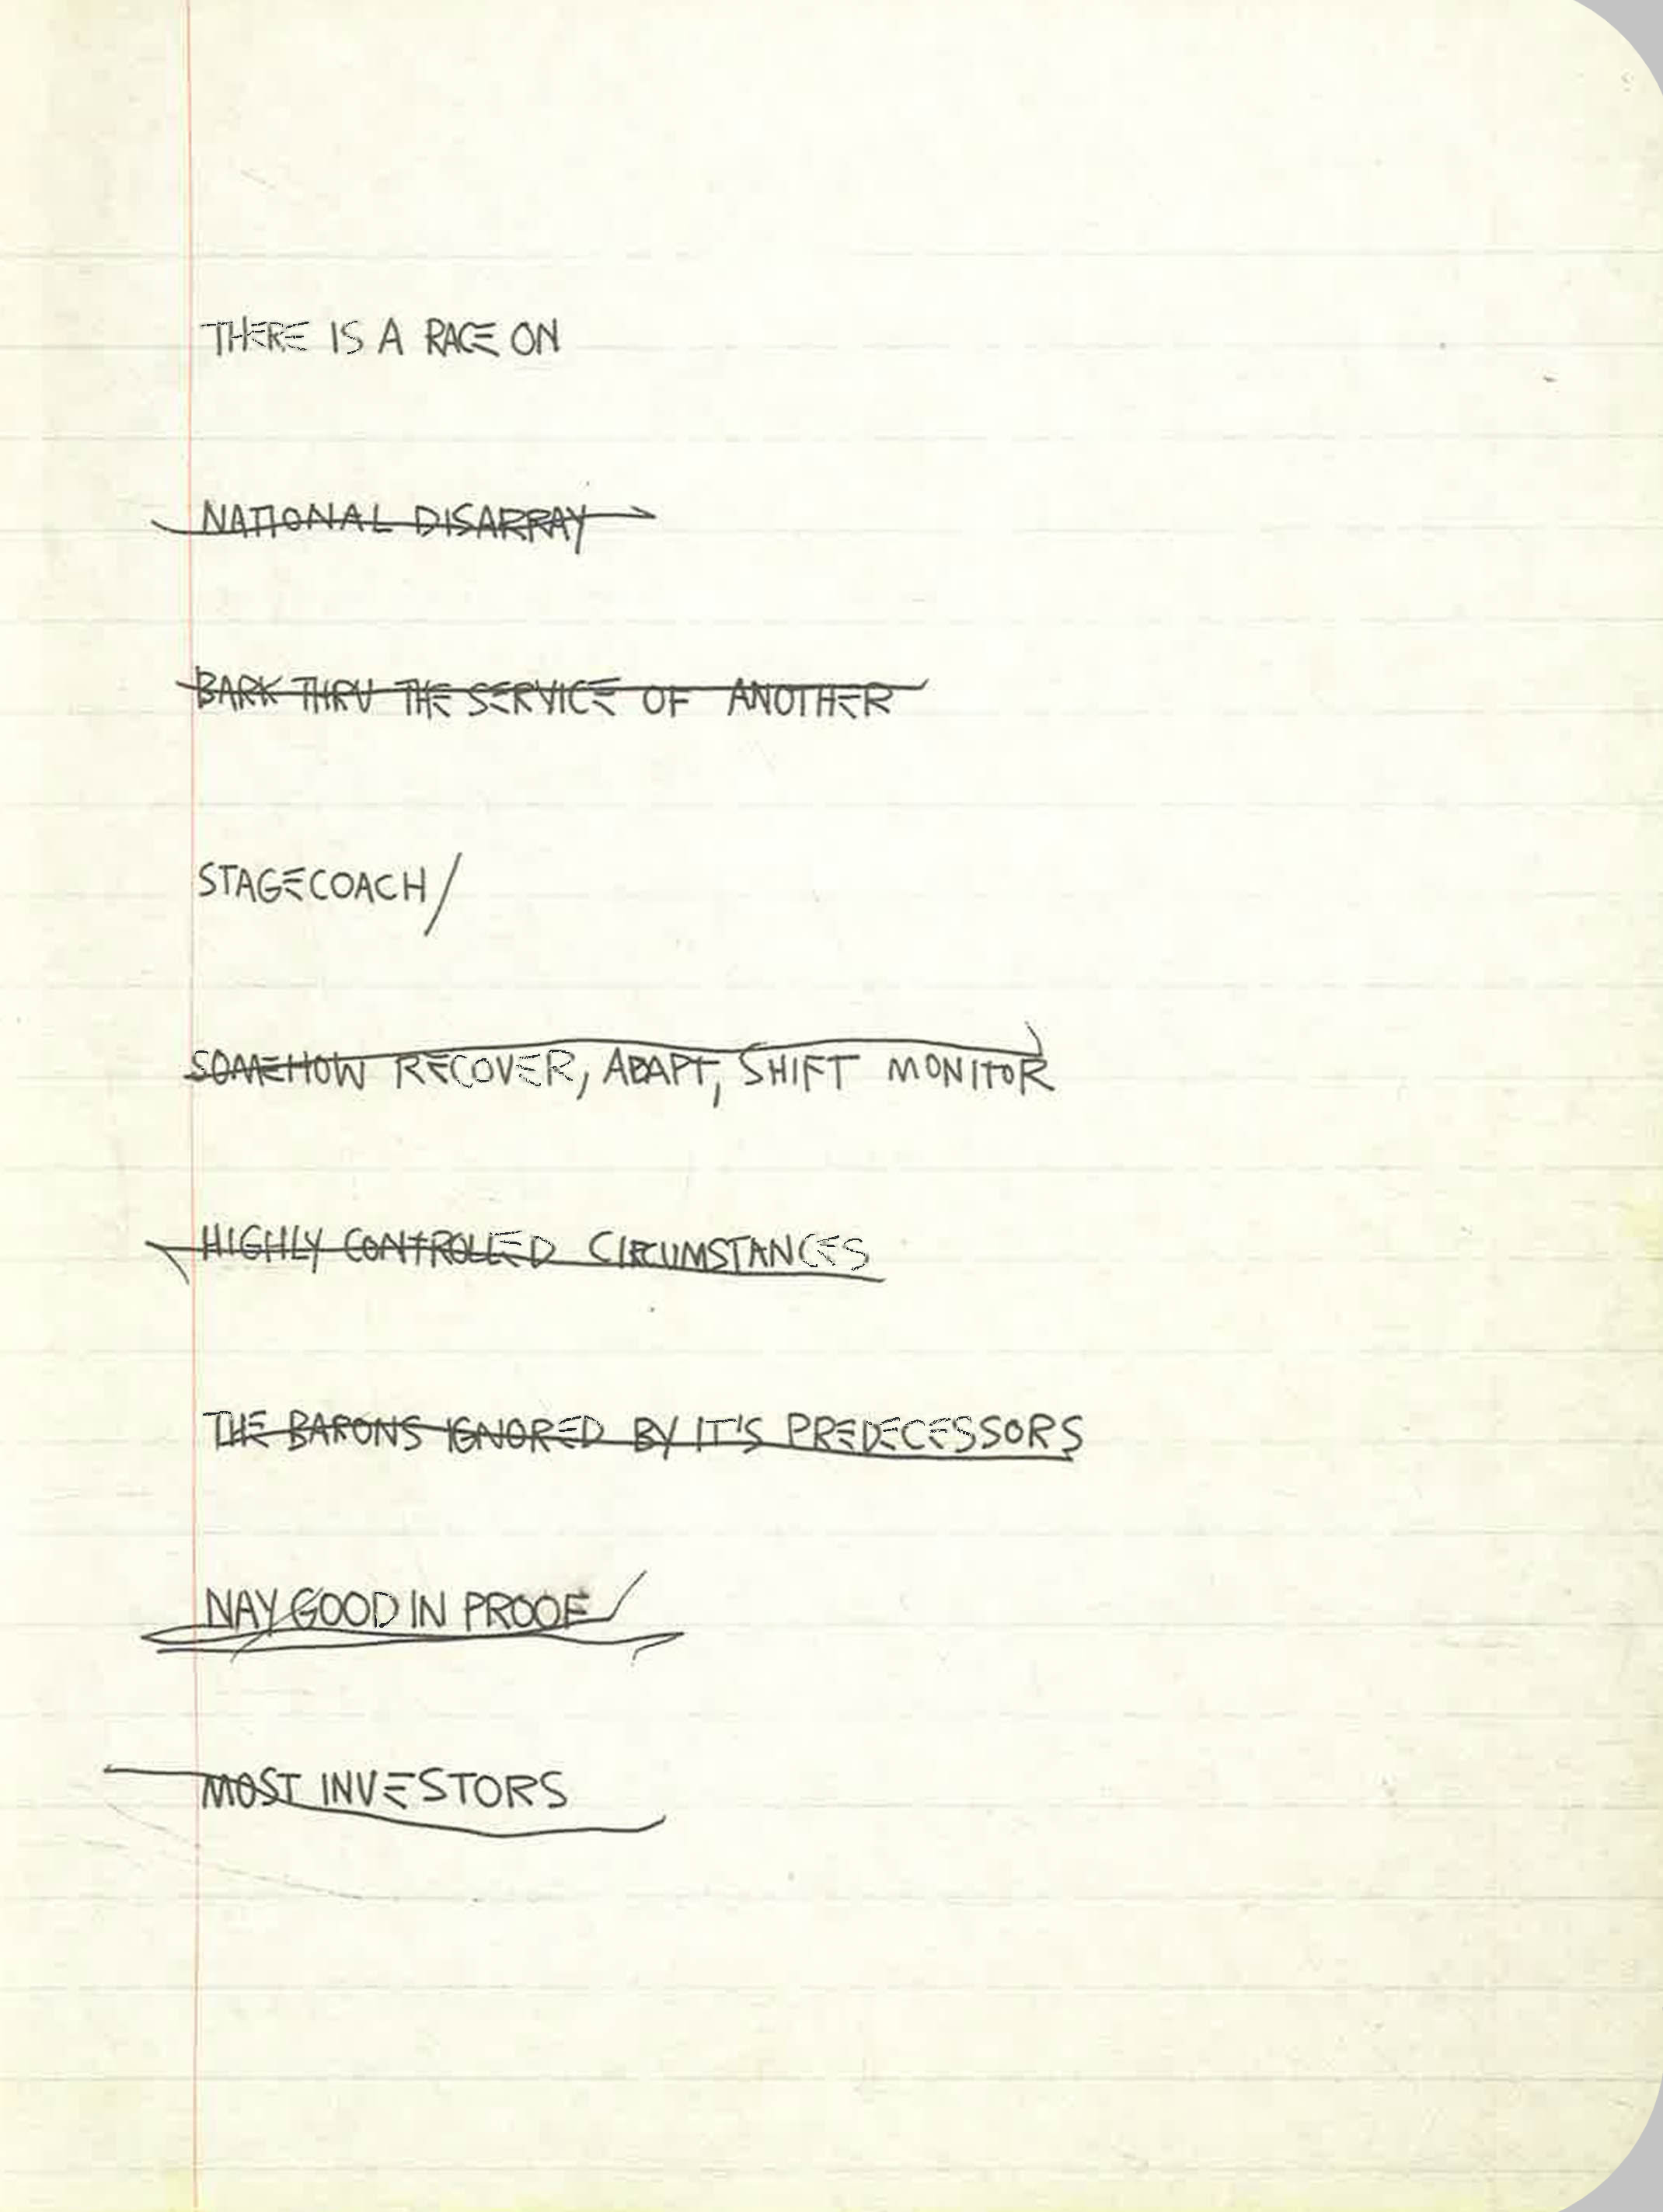 THERE IS A RACE ON
NATIONAL DISARRAY
BARK THRU THE SERVICE OF ANOTHER
STAGECOACH/
SOMEHOW RECOVER, ADAPT, SHIFT MONITOR
HIGHLY CONTROLLED CIRCUMSTANCES
THE BARONS IGNORED BY IT'S PREDECESSORS
NAY GOOD IN PROOF
MOST INVESTORS